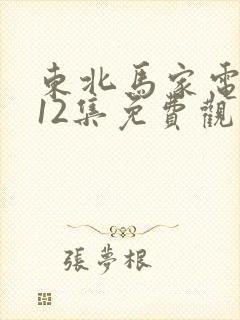 東北馬家電
12集免費觀
張夢根